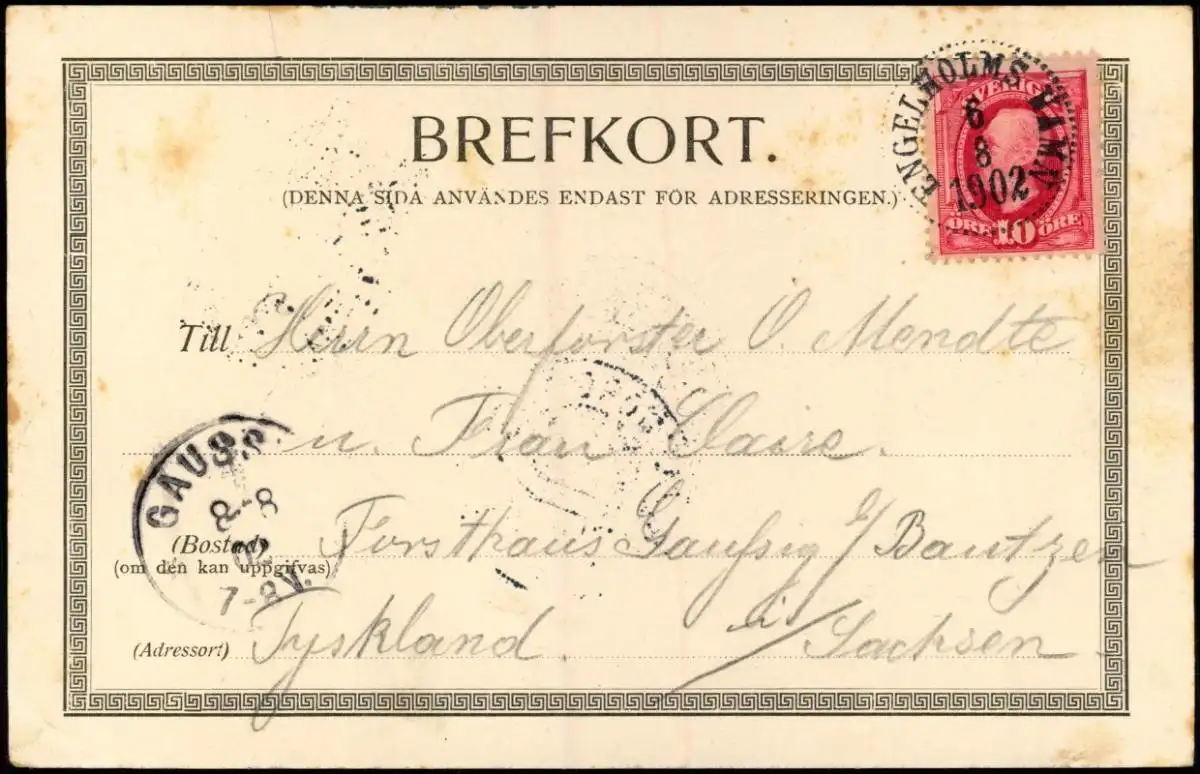 BREFKORT.
(DENNA SIDA ANVÄNDES ENDAST FÖR ADRESSERINGEN.)
ENGELHOLMS HAMN
6
8
1902
SVERIGE
ÖRE 10 ÖRE
Till Herrn Oberförster O. Mendte
u. Frau Claire.
GAUSS
8-8
02
7-8V.
(Bostad) Forsthaus Gaußig b/ Bautzen
(om den kan uppgifvas)
(Adressort) Tyskland. i/ Sachsen